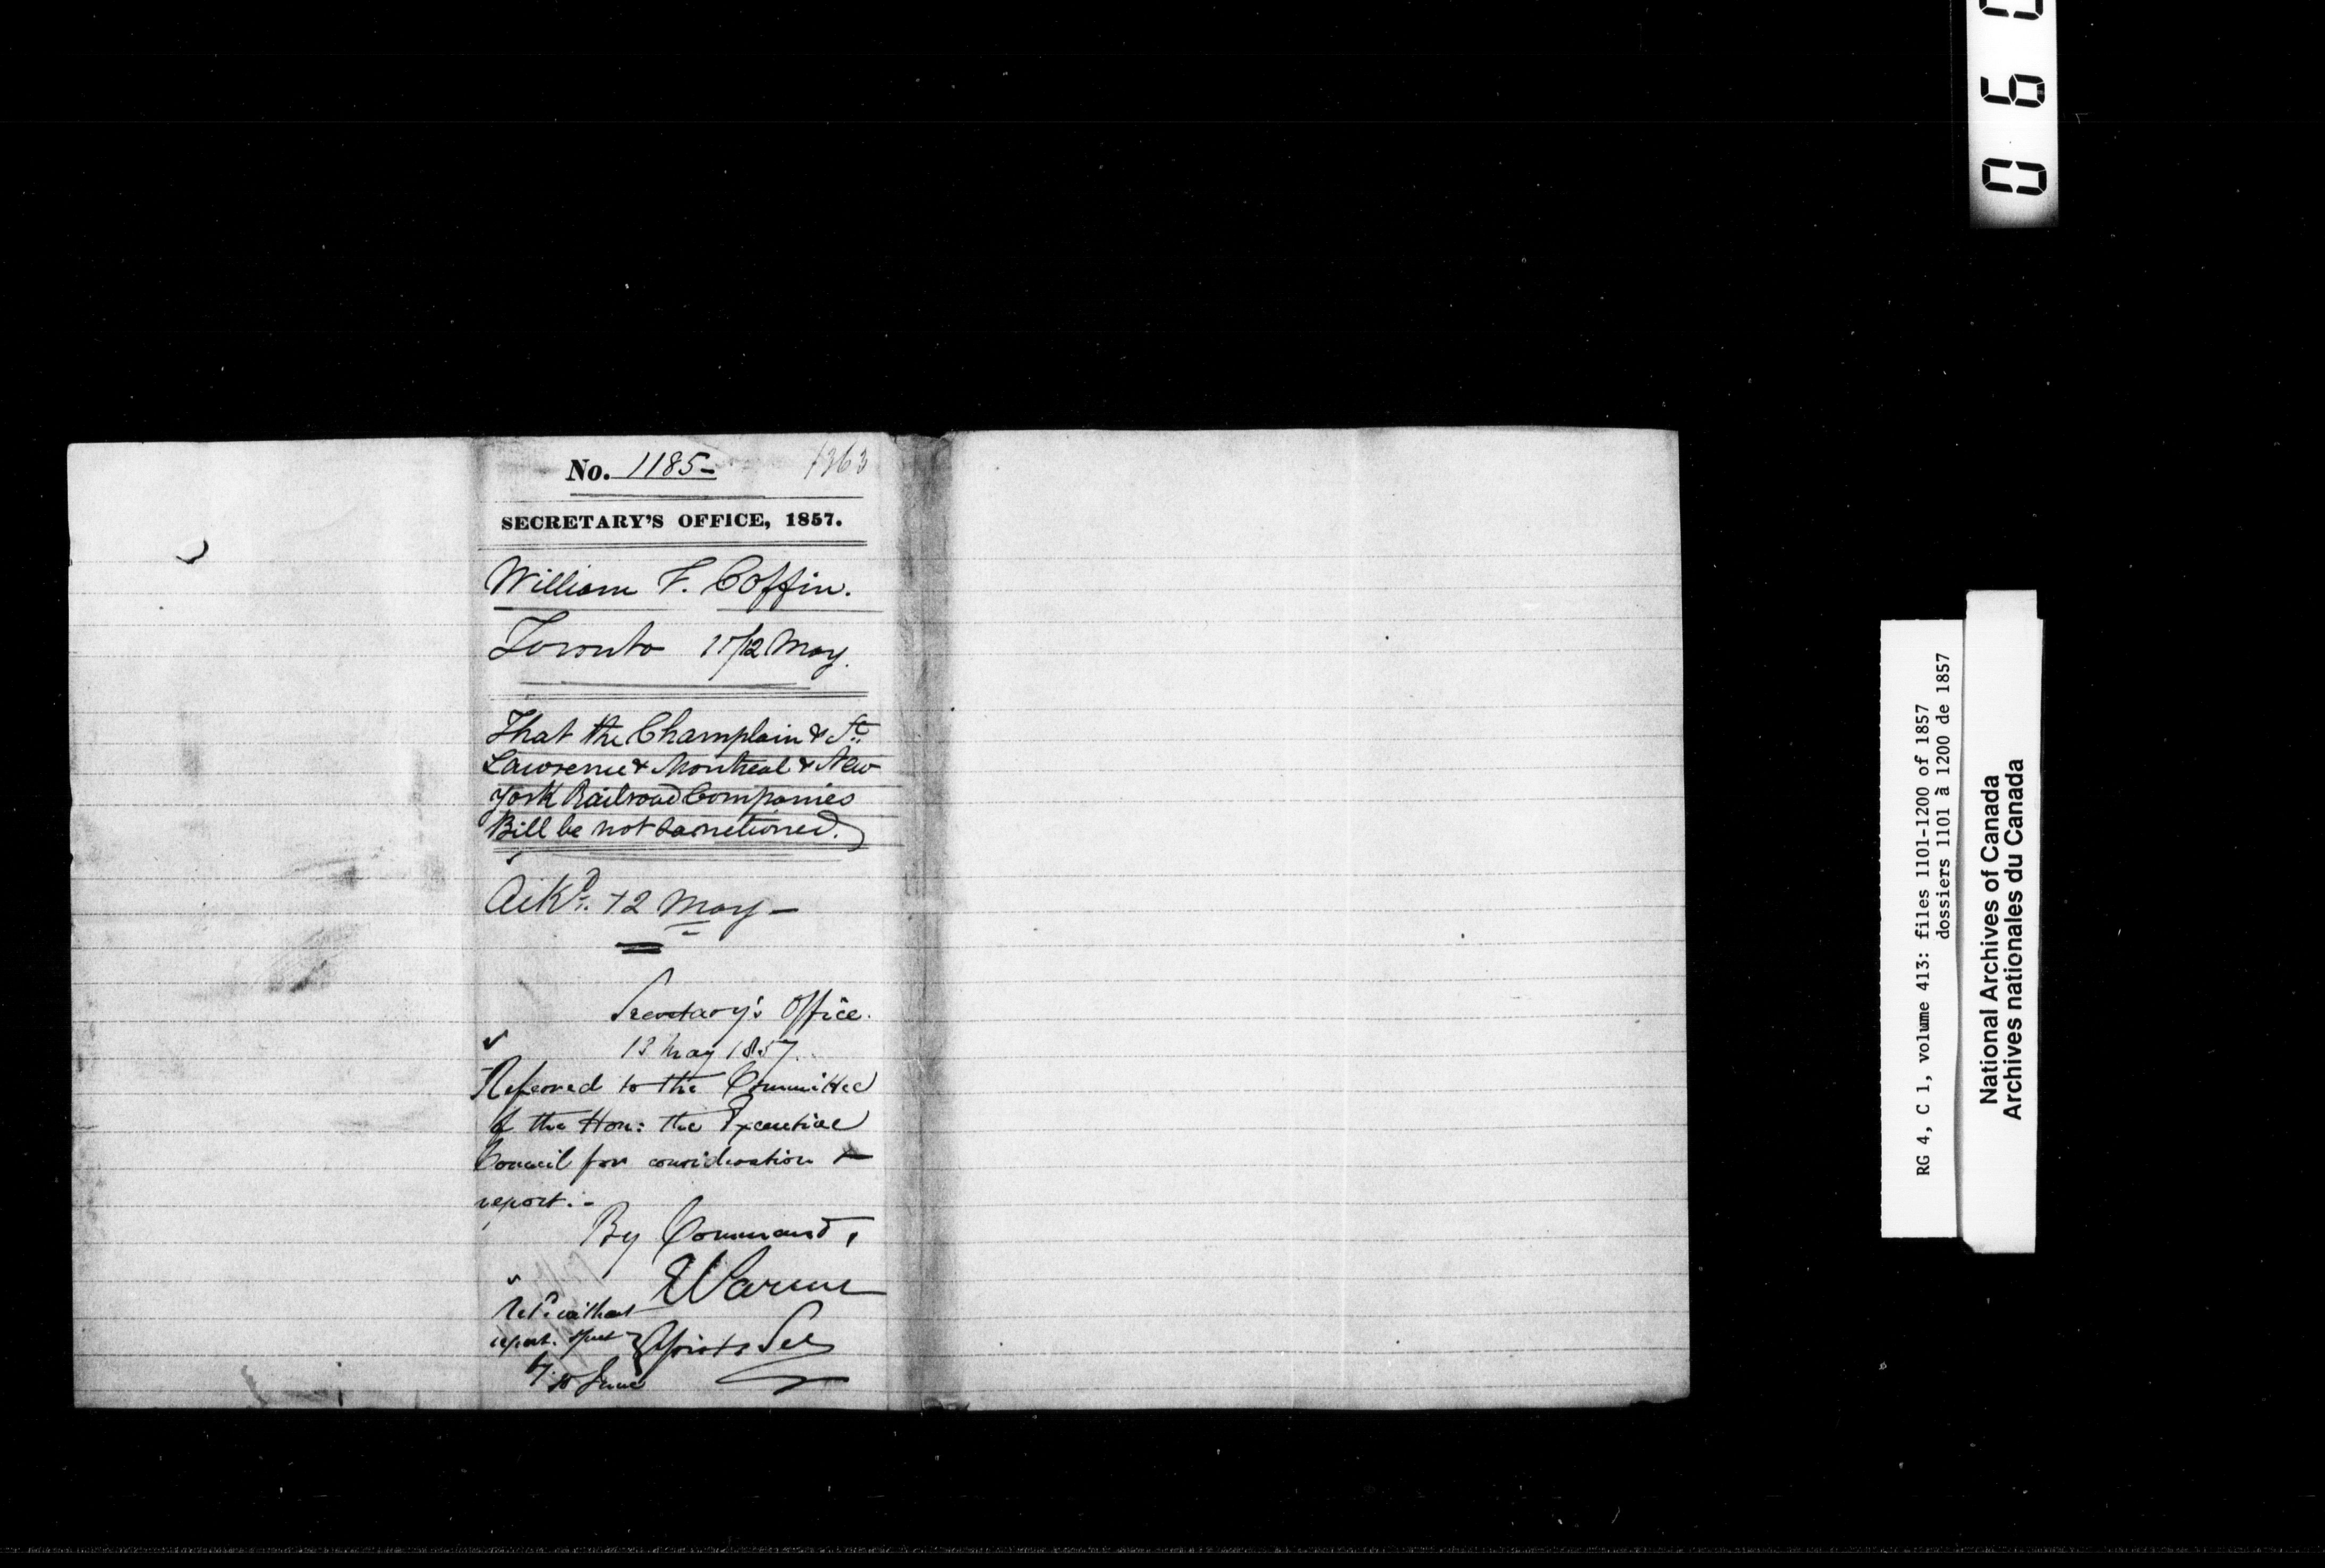 No. 1185-
1363
SECRETARY'S OFFICE, 1857.
William F. Coffin.
Toronto 11/12 May.
That the Champlain & St.
Lawrence & Montreal & New
York Railroad Companies
Bill be not sanctioned.
Ackd. 12 May -
Secretary's Office.
13 May 1857.
Referred to the Committee
of the Hon: the Executive
Council for consideration &
report:-
By Command,
Retd. without
report.
10 June
RG 4, C 1, volume 413: files 1101-1200 of 1857
dossiers 1101 à 1200 de 1857
National Archives of Canada
Archives nationales du Canada